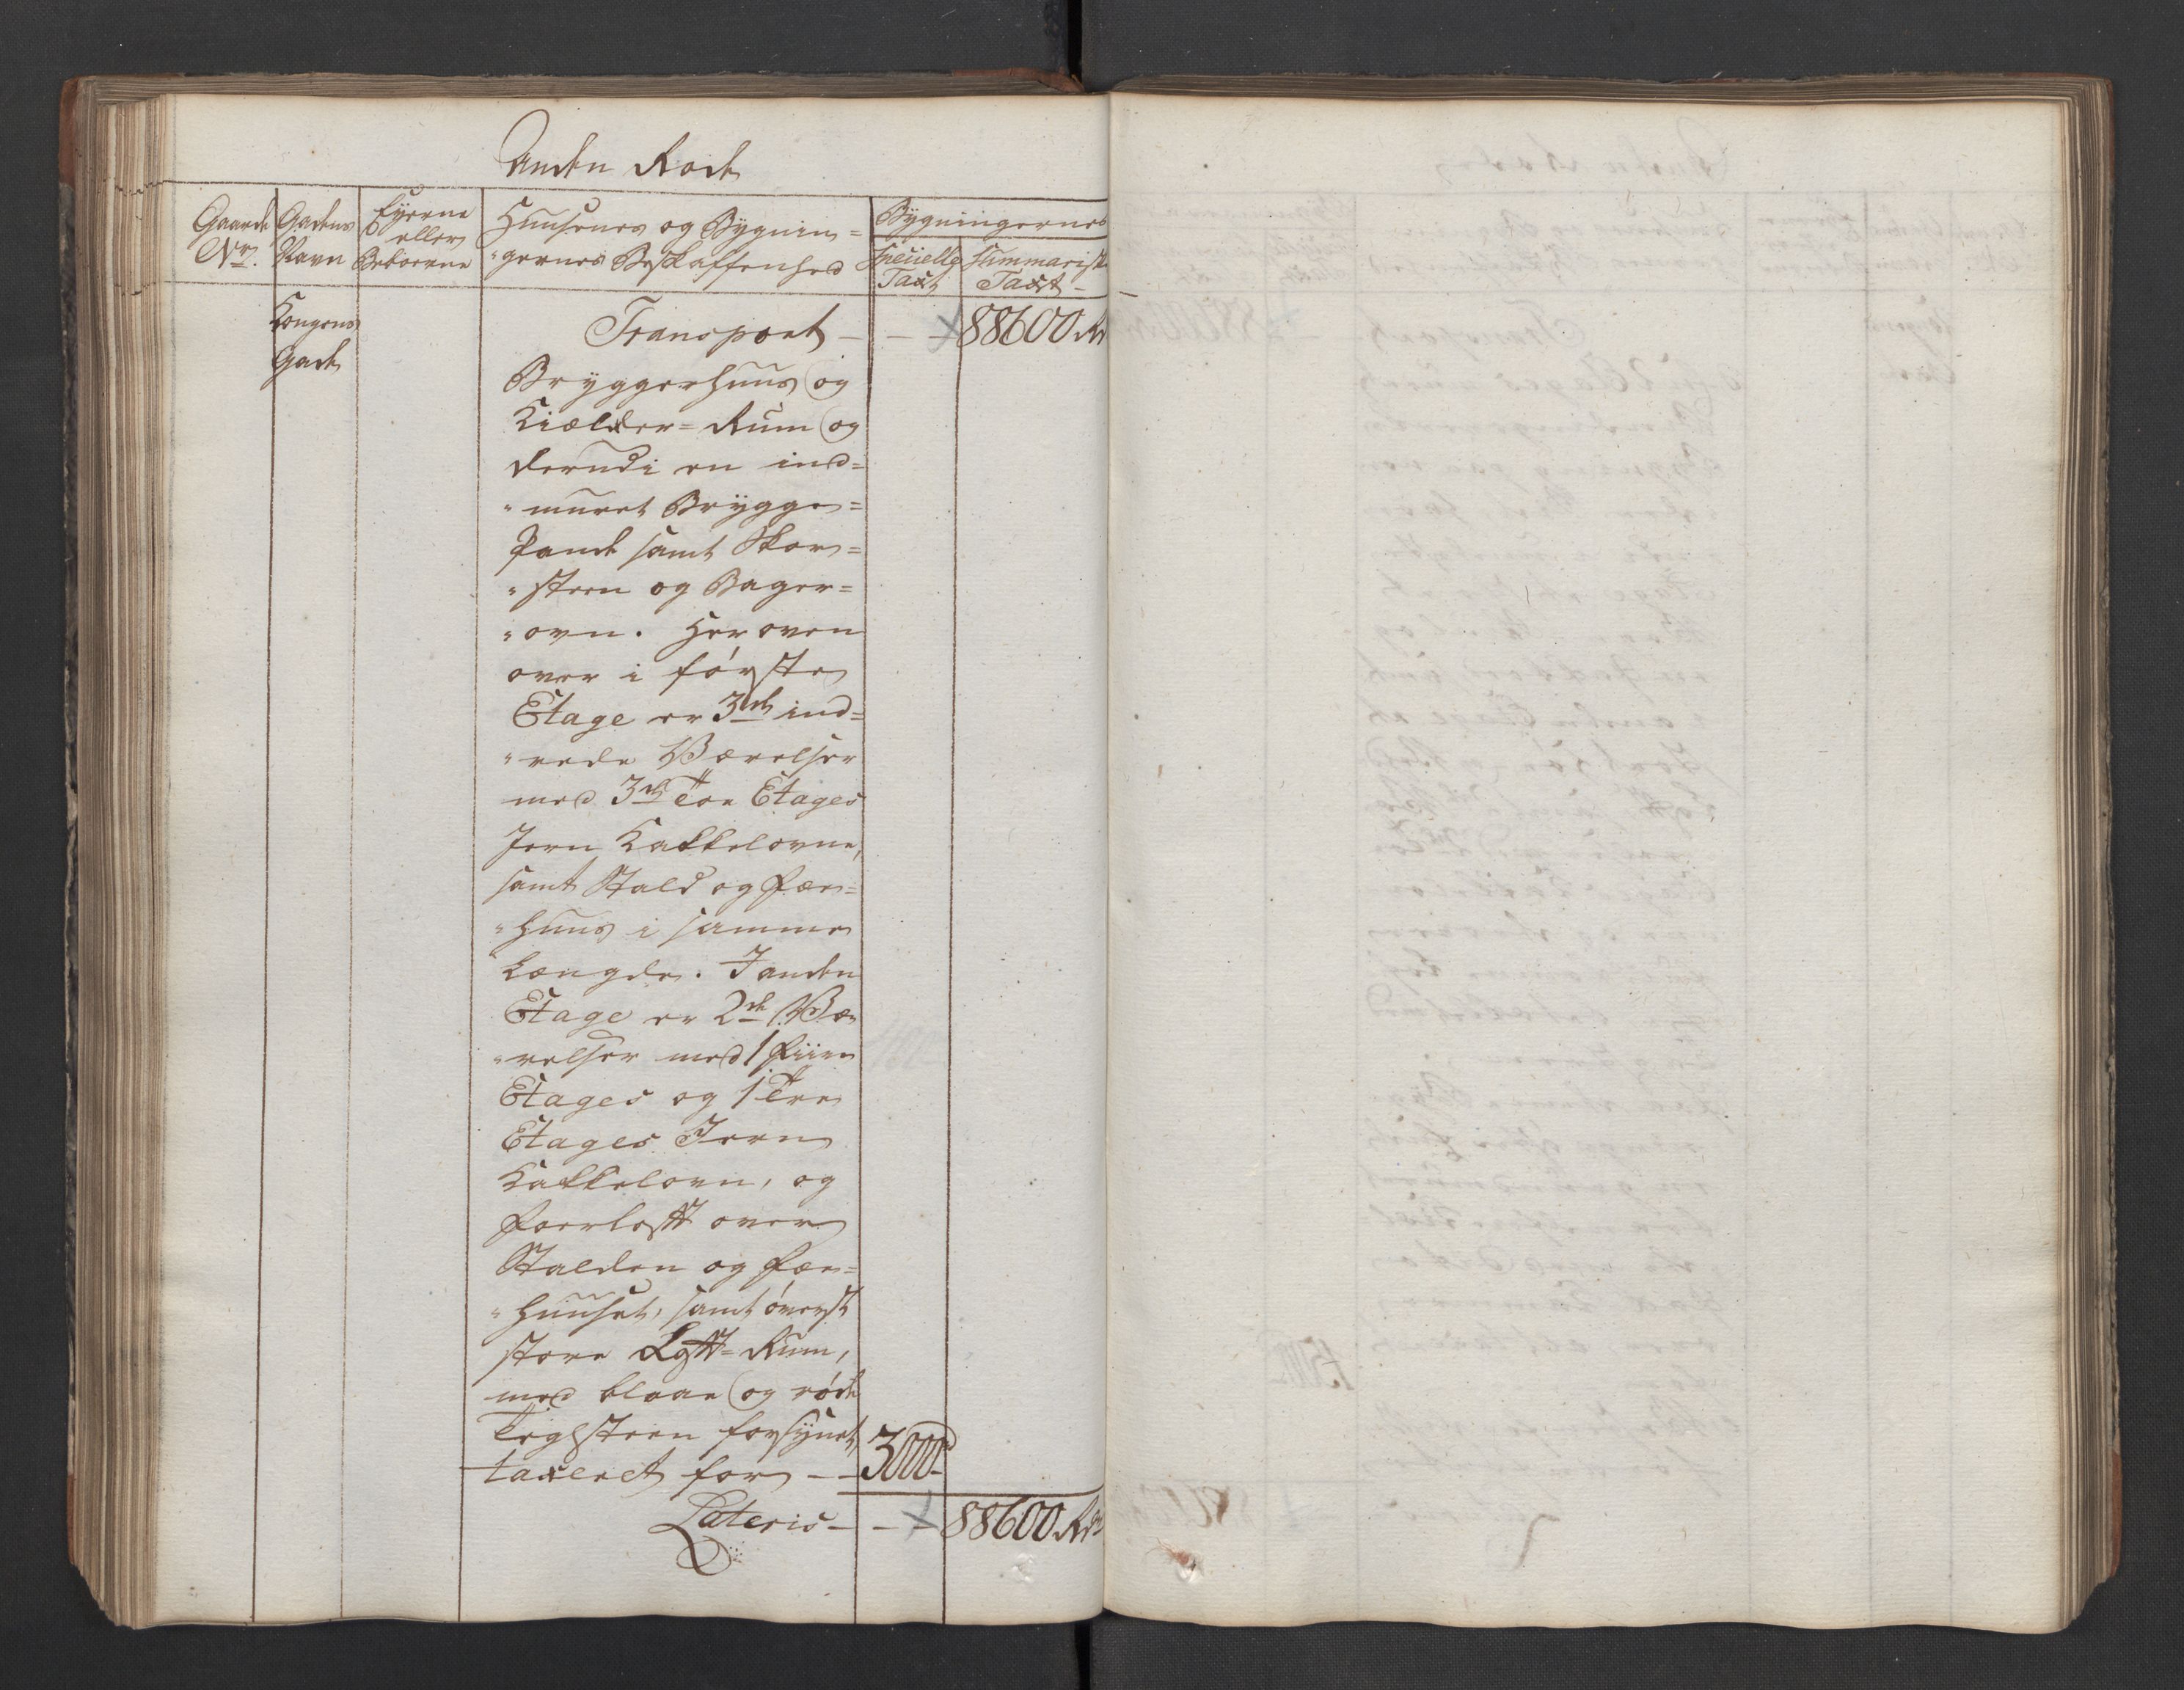 Anden Rode
Gaarde Nr.
Gadens Navn
Eyerne eller Beboerne
Huusenes og Bygnin=
"gernes Beskaffenhed
Bygningernes
Specielle Taxt
Summariske Taxt
Kongens
Gade
Transport - - - 88600 Rd
Bryggerhuus og
Kielder=Rum og
derudi en ind=
"muuret Brygge=
Pande samt Skor=
"steen og Bager=
"ovn. Her oven
over i første
Etage er 3de ind=
"rede Værelser
med 3de Toe Etages
Jern Kakkelovne,
samt Stald og Fæe=
"huus i samme
Længde. I anden
Etage er 2de Væ=
"relser med 1 Fiire
Etages og 1 Tre
Etages Jern
Kakkelovn, og
Foerloft over
Stalden og Fæe=
"huuset, samt øverst
store Loft=Rum,
med blaae og røde
Teglsteen forsynet,
taxeret for - - 3000
Lateris - - - 88600 Rd